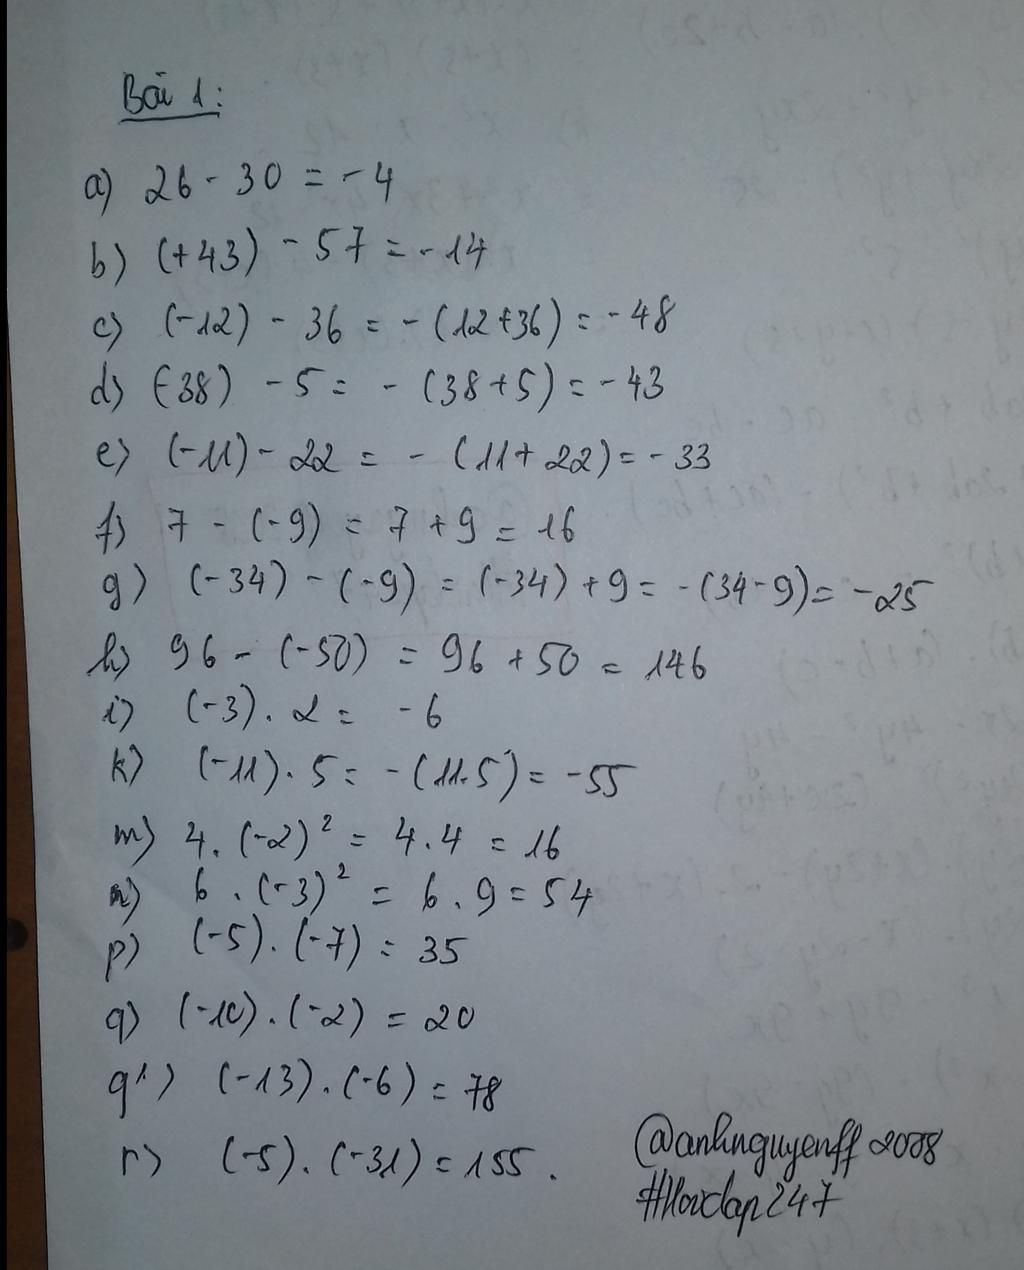 Bài 1:
a) 26 - 30 = - 4
b) (+43) - 57 = - 14
c) (-12) - 36 = - (12+36) = - 48
d) (-38) - 5 = - (38+5) = - 43
e) (-11) - 22 = - (11+22) = - 33
f) 7 - (-9) = 7 + 9 = 16
g) (-34) - (-9) = (-34) + 9 = -(34-9) = -25
h) 96 - (-50) = 96 + 50 = 146
i) (-3) . 2 = - 6
k) (-11) . 5 = - (11.5) = -55
m) 4. (-2)² = 4 . 4 = 16
n) 6 . (-3)² = 6 . 9 = 54
p) (-5) . (-7) = 35
q) (-10) . (-2) = 20
q') (-13) . (-6) = 78
r) (-5) . (-31) = 155 .
@anhnguyenff2008
#Hoidap247